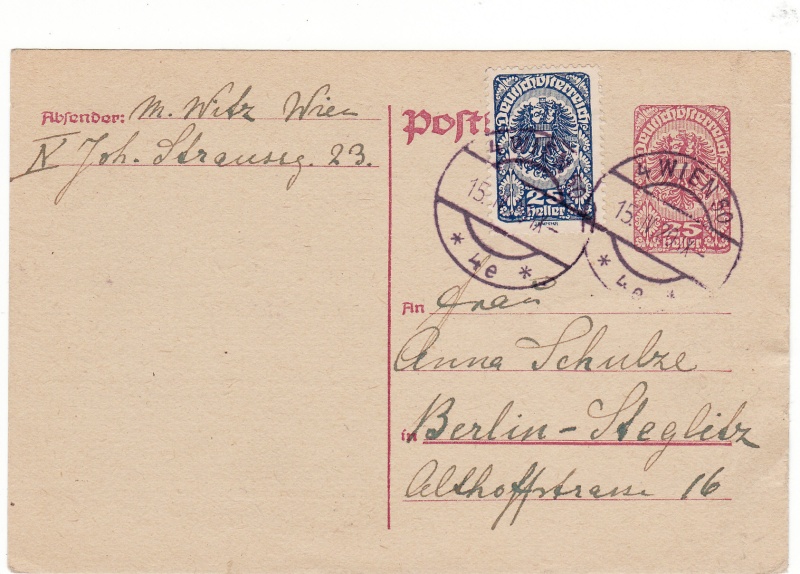 Absender: M. Witz Wien
IV Joh. Straussg. 23.
Post
Deutschösterreich
25
Heller
Deutschösterreich
25
Heller
15.
* 4e *
4 WIEN 50
15.
* 4e *
An Frau
Anna Schulze
in Berlin-Steglitz
Althoffstrasse 16